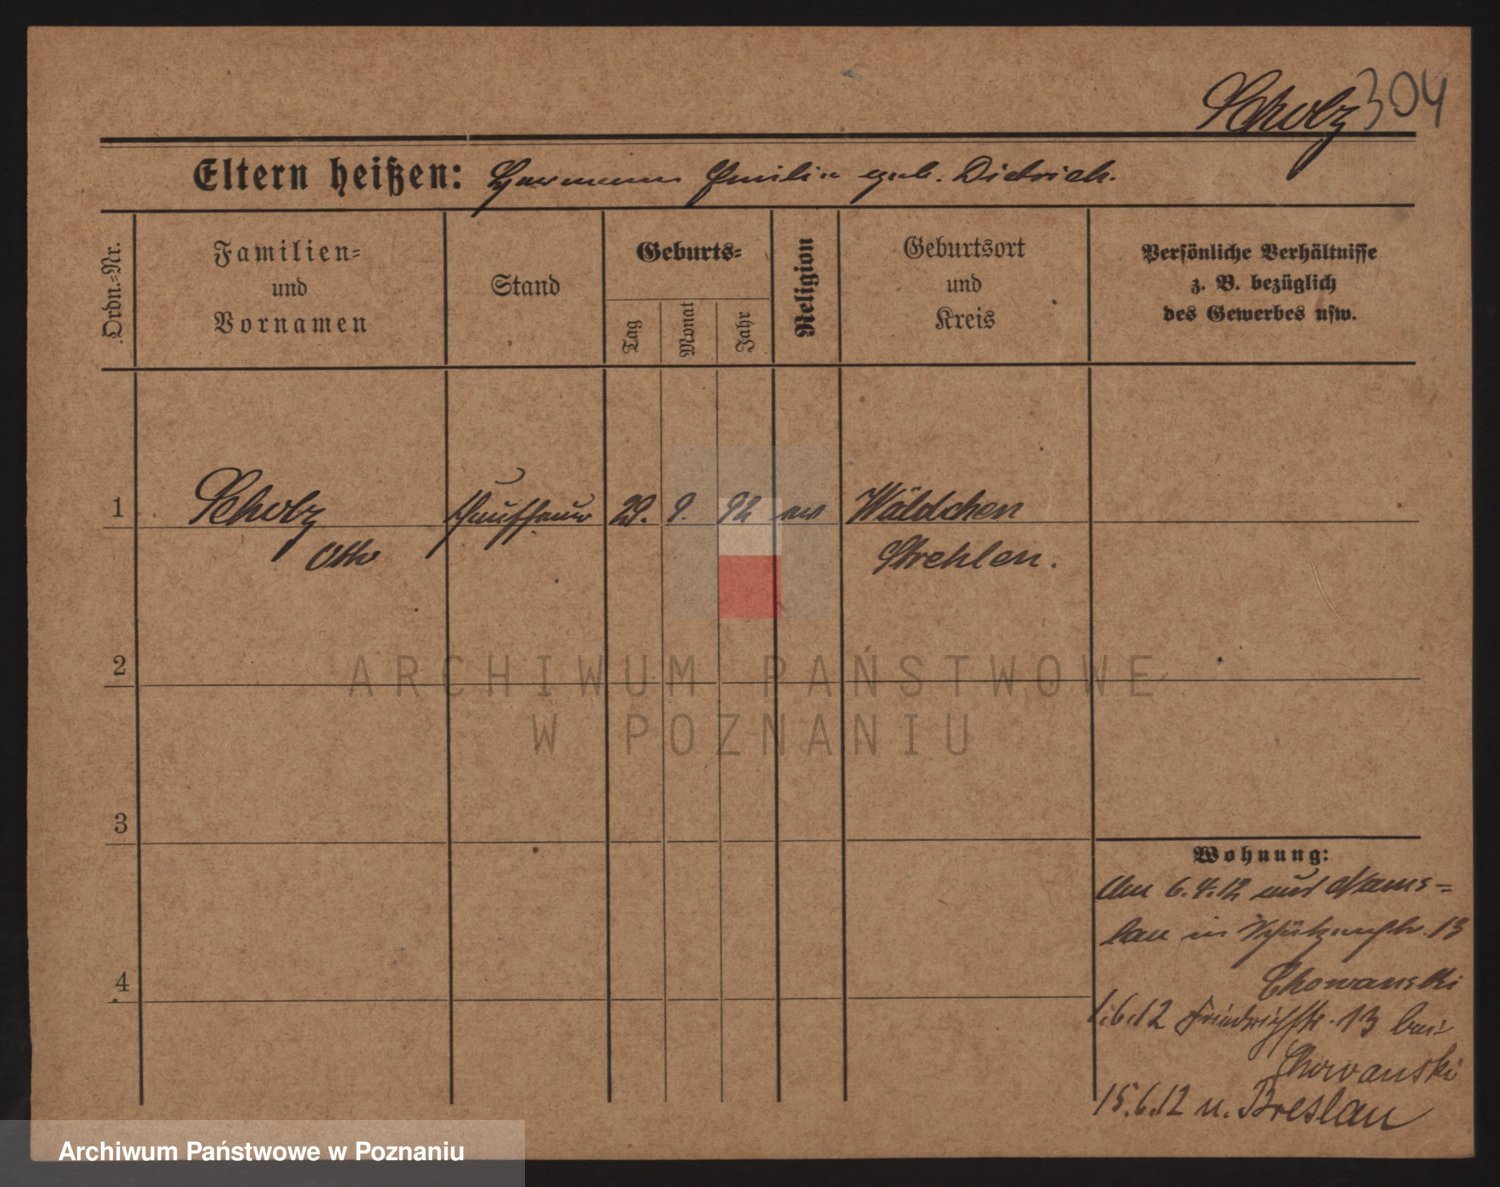 Scholz 304
Eltern heißen: Hermann Emilie geb. Dietrich.
Ordn.-Nr.
Familien-
und
Vornamen
Stand
Geburts-
Tag
Monat
Jahr
Religion
Geburtsort
und
Kreis
Persönliche Verhältnisse
z. B. bezüglich
des Gewerbes usw.
1
Scholz
Otto
29. 9. 92 ev
Wäldchen
Strehlen.
2
3
4
Wohnung:
Am 6.4.12 aus Nams-
lau in Schützenstr. 13
Chowanski
1.6.12 Friedrichstr. 13 bei
Chowanski
15.6.12 n. Breslau
ARCHIWUM PAŃSTWOWE
W POZNANIU
Archiwum Państwowe w Poznaniu